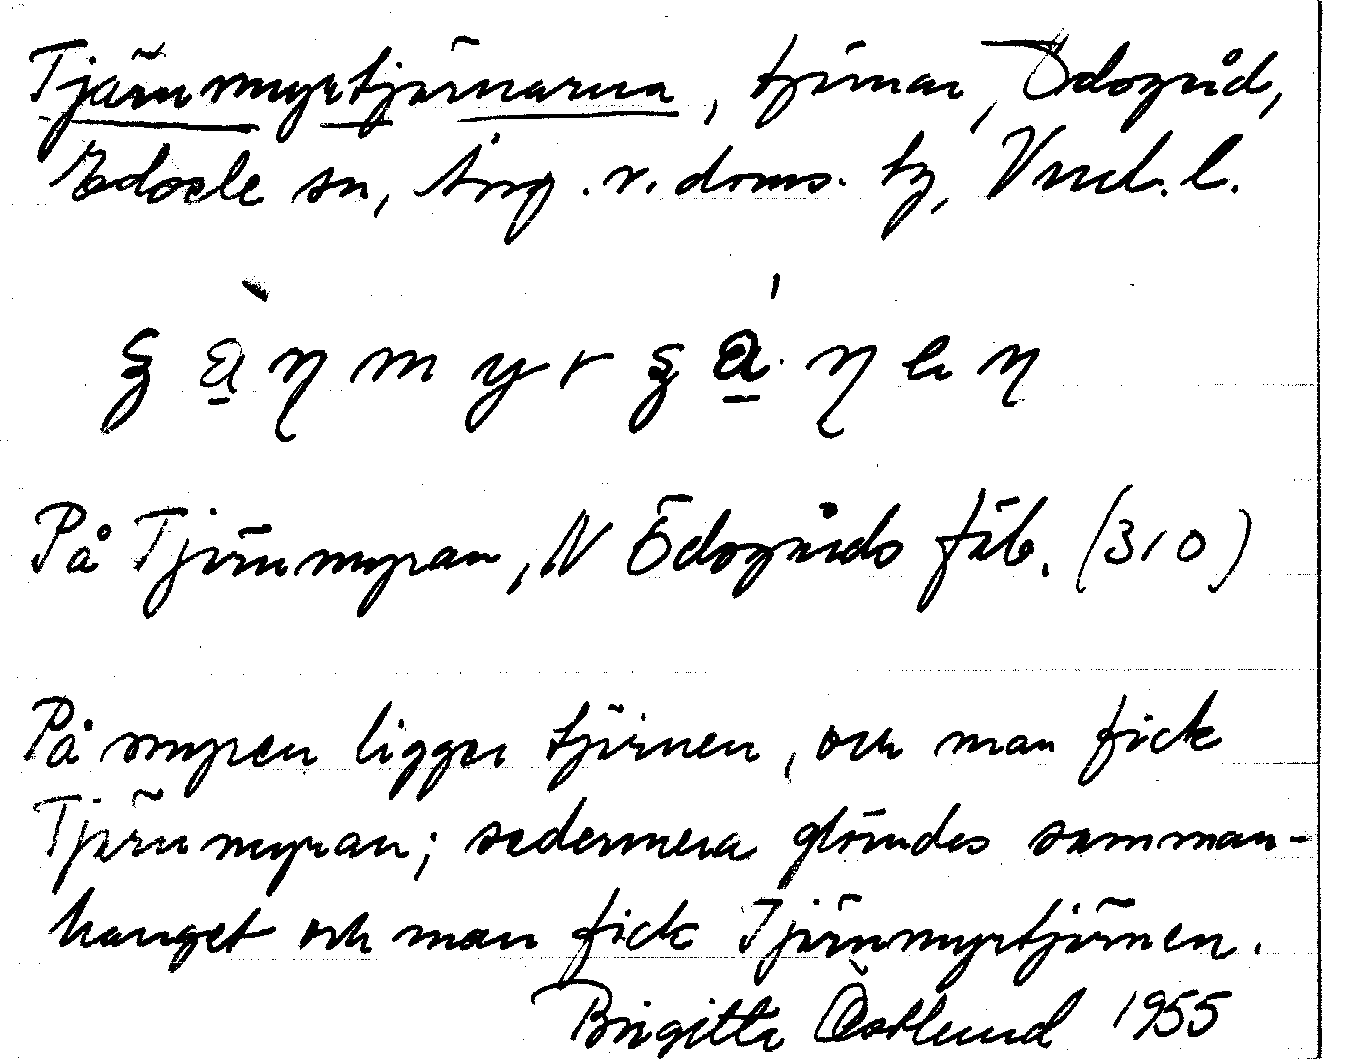 Tjärnmyrtjärnarna, tjärnar, Ödsgård,
Edsele sn, Ång. v. doms. tg, Vnrl. l.
På Tjärnmyran, N Ödsgårds fäb. (310)
På myren ligger tjärnen, och man fick
Tjärnmyran; sedermera glömdes samman-
hanget och man fick Tjärnmyrtjärnen.
Brigitta Östlund 1955